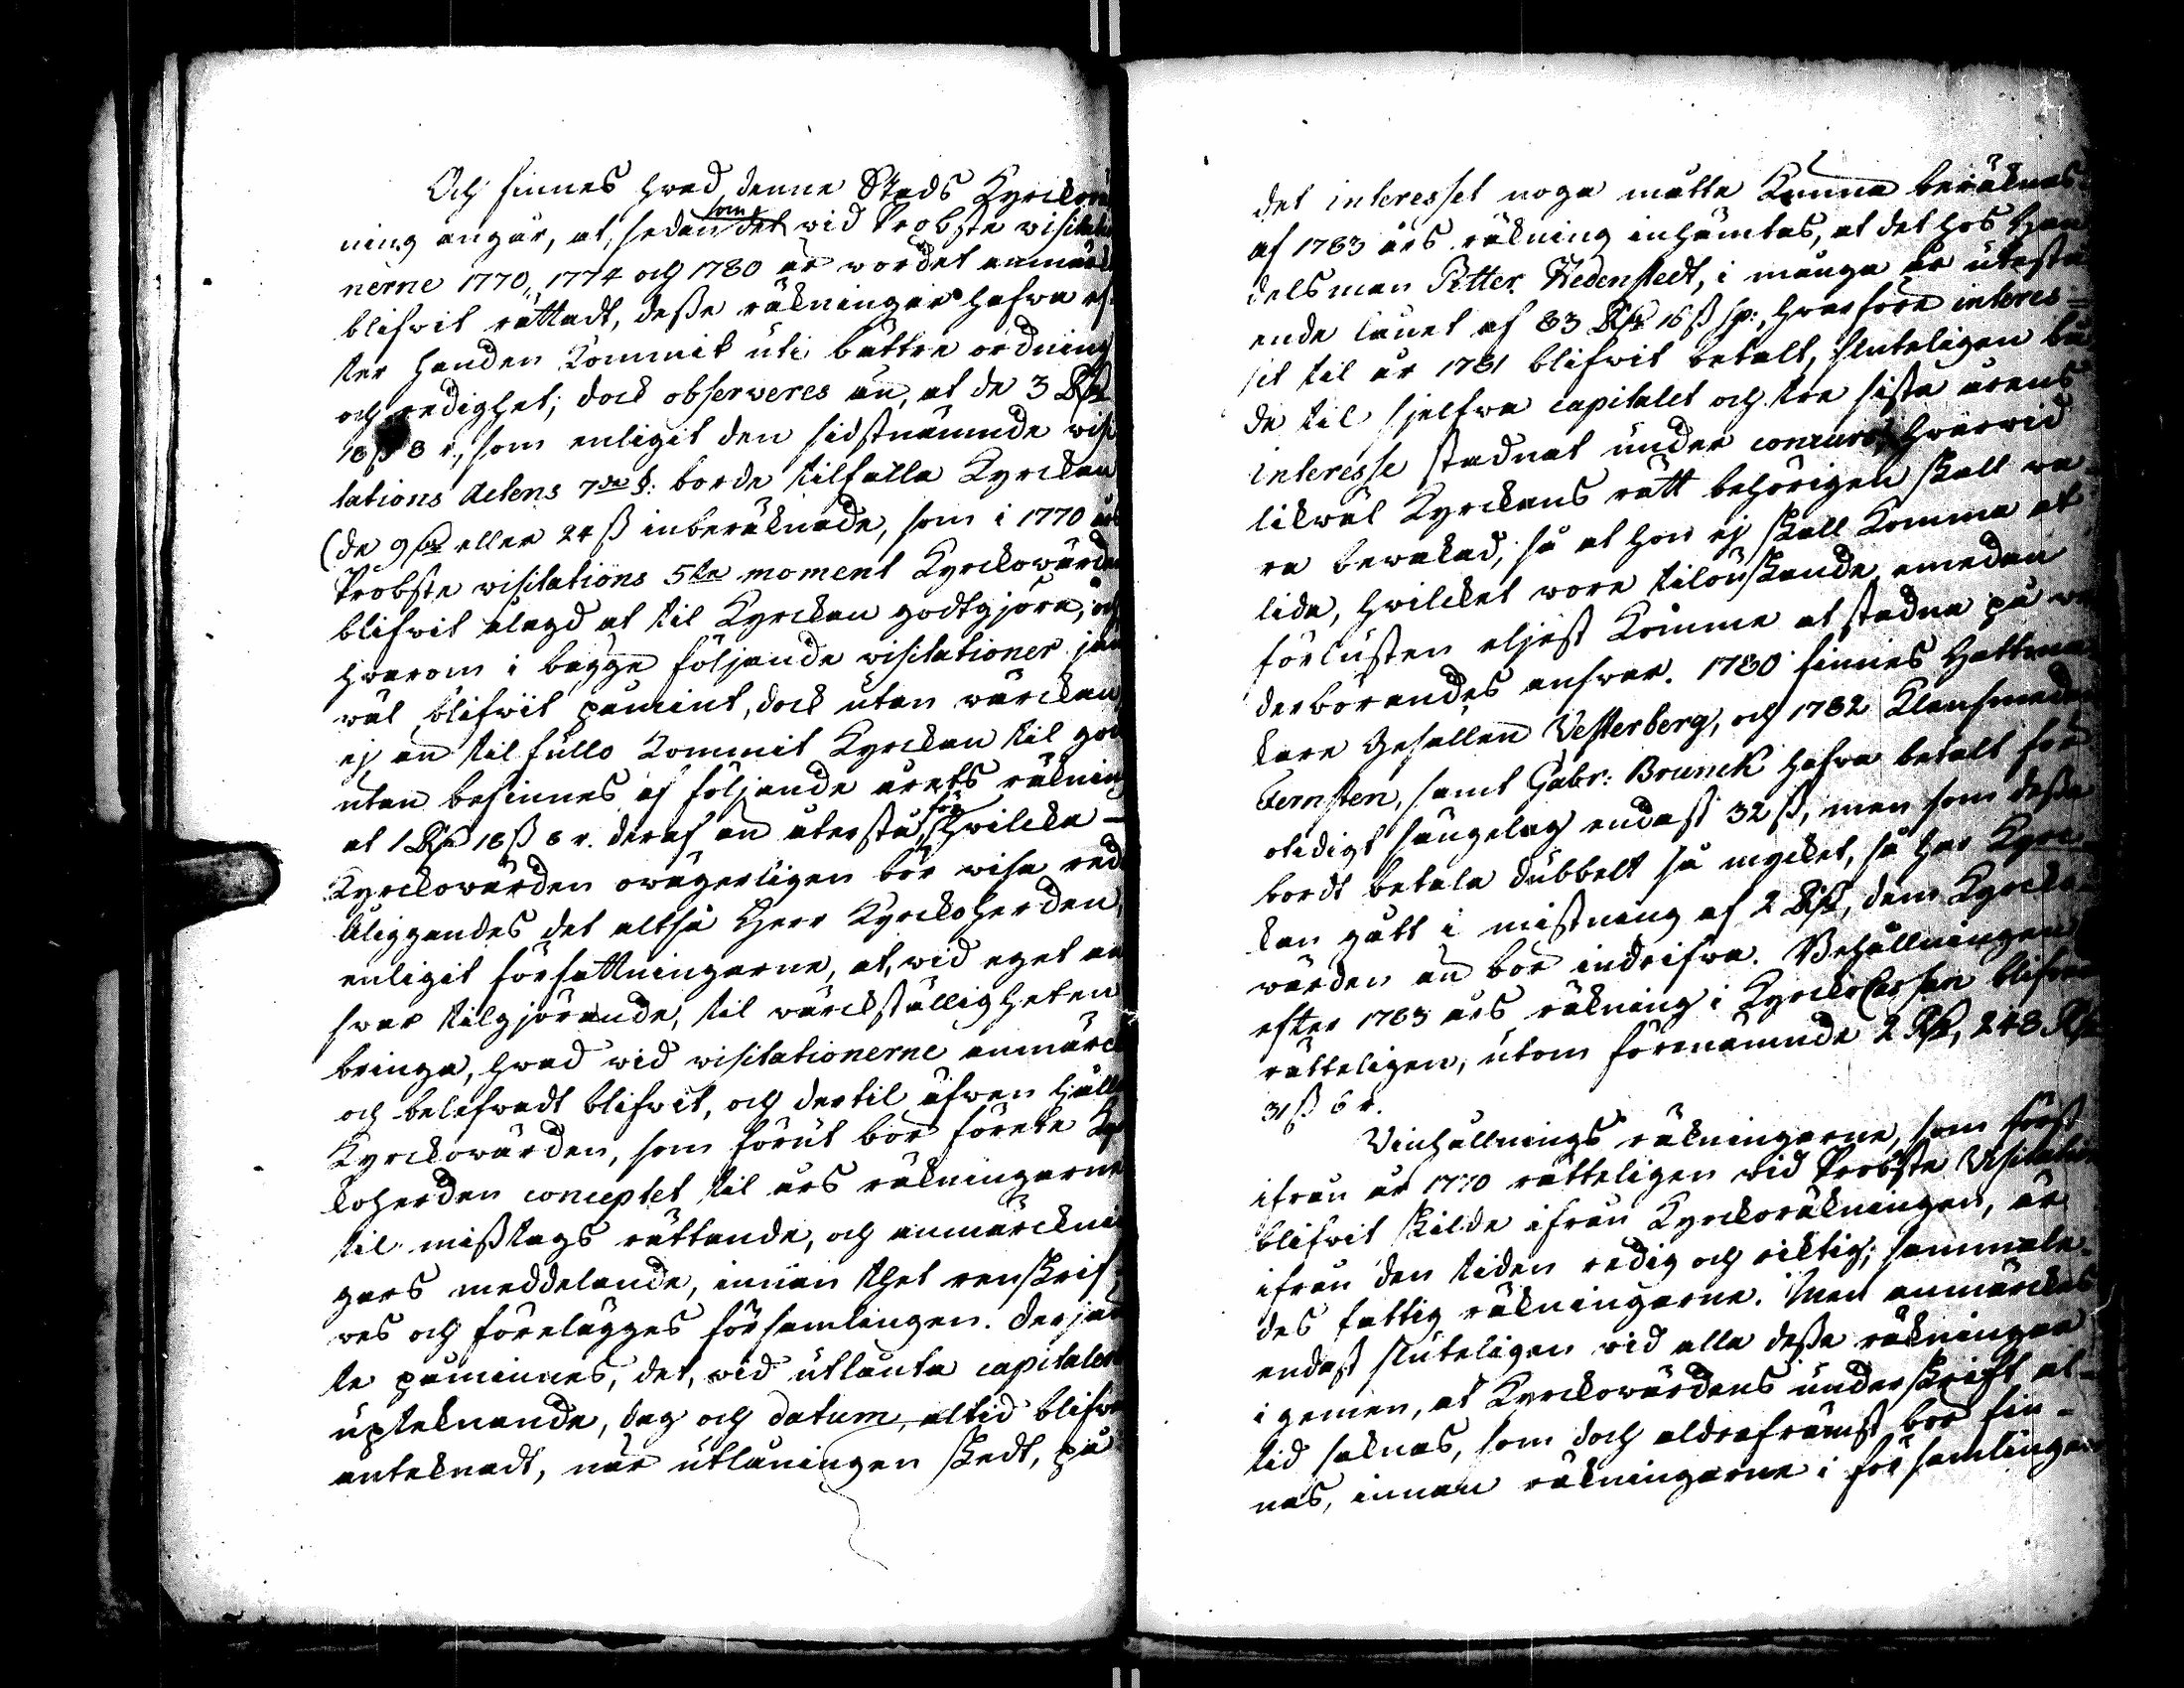 Och finnes hwad denne Stads Kyrckoräk
ning angår, at, sedan som det wid Probste visitatio
nerne 1770, 1774 och 1780 är wordet anmärkt
blifwit rättadt, desse räkningar hafwa ef-
ter handen kommit uti bättre ordning
och redighet; dock observeres än, at de 3 Rd
18 ß 8 r, som enligit den sidstnämnde visi
tations Actens 7de §: borde tilfalla Kyrckan
(de 9 eller 24 ß inberäknade, som i 1770 års
Probste visitations 5te moment Kyrckowärden
blifwit ålagd at til Kyrckan godtgjöra, och
hwarom i bägge följande visitationer jem
wäl blifwit påmint, dock utan wärckan
ej än til fullo kommit Kyrckan til godo
utan befinnes af följande årets räkning
at 1 Rd 18 ß 8 r. deraf än återstå, för hwilcka
Kyrckowärden owägerligen bör wisa redo
Åliggandes det altså Herr Kyrckoherden,
enligit författningarne, at, wid eget an
swar tilgjörande, til wärckställigheten
bringa, hwad wid visitationerne anmärckt
och belefwadt blifwit, och dertil äfwen hålla
Kyrckowärden, som förut bör förete Kyr
koherden conceptet til års räkningarne
til misstags rättande, och anmärcknin
gars meddelande, innan thet renskrif-
wes och förelägges församlingen. Derjem
te påminnes, det, wid utlånta capitalers
upteknande, dag och datum, altid blifwa
anteknadt, när utlåningen skedt, på
det interesset noga måtte kunna beräknas
af 1783 års räkning inhämtas, at det hos Han
delsman Petter Hedenstedt, i många år utestå
ende lånet af 83 Rd 16 ß sp:, hwarföre interes-
sit til år 1781 blifwit betalt, sluteligen bå
de til sjelfwa capitalet och tre sista årens
interesse stadnat under concurs, hwarwid
likwäl Kyrckans rätt behörigen skall wa-
ra bewakad, så at hon ej skall komma at
lida, hwilcket wore tilönskande, emedan
förlusten eljest komme at stadna på we
derbörandes answar. 1780 finnes Hattma-
kare Gesällen Vesterberg, och 1782 Klensmeden
Fernsten, samt Gabr: Brunck hafwa betalt för
otidigt sängelag endast 32 ß, men som desse
bordt betala dubbelt så mycket, så har Kyrc-
kan gått i mistning af 2 Rd, dem Kyrcko-
wärden än bör indrifwa. Behållningen
efter 1783 års räkning i Kyrckocassan blifwer
rätteligen, utom förenämnde 2 Rd, 248 Rd
31 ß 6 r.
Vinhållnings räkningarne, som först
ifrån år 1770 rätteligen wid Probste Visitation
blifwit skilde ifrån Kyrckoräkningen, är
ifrån den tiden redig och riktig; sammale-
des fattig räkningarne. Men anmärckes
endast sluteligen wid alla desse räkningar
i gemen, at Kyrckowärdens underskrift al-
tid saknas, som doch aldraförst bör fin-
nas, innan räkningarne i församlingen